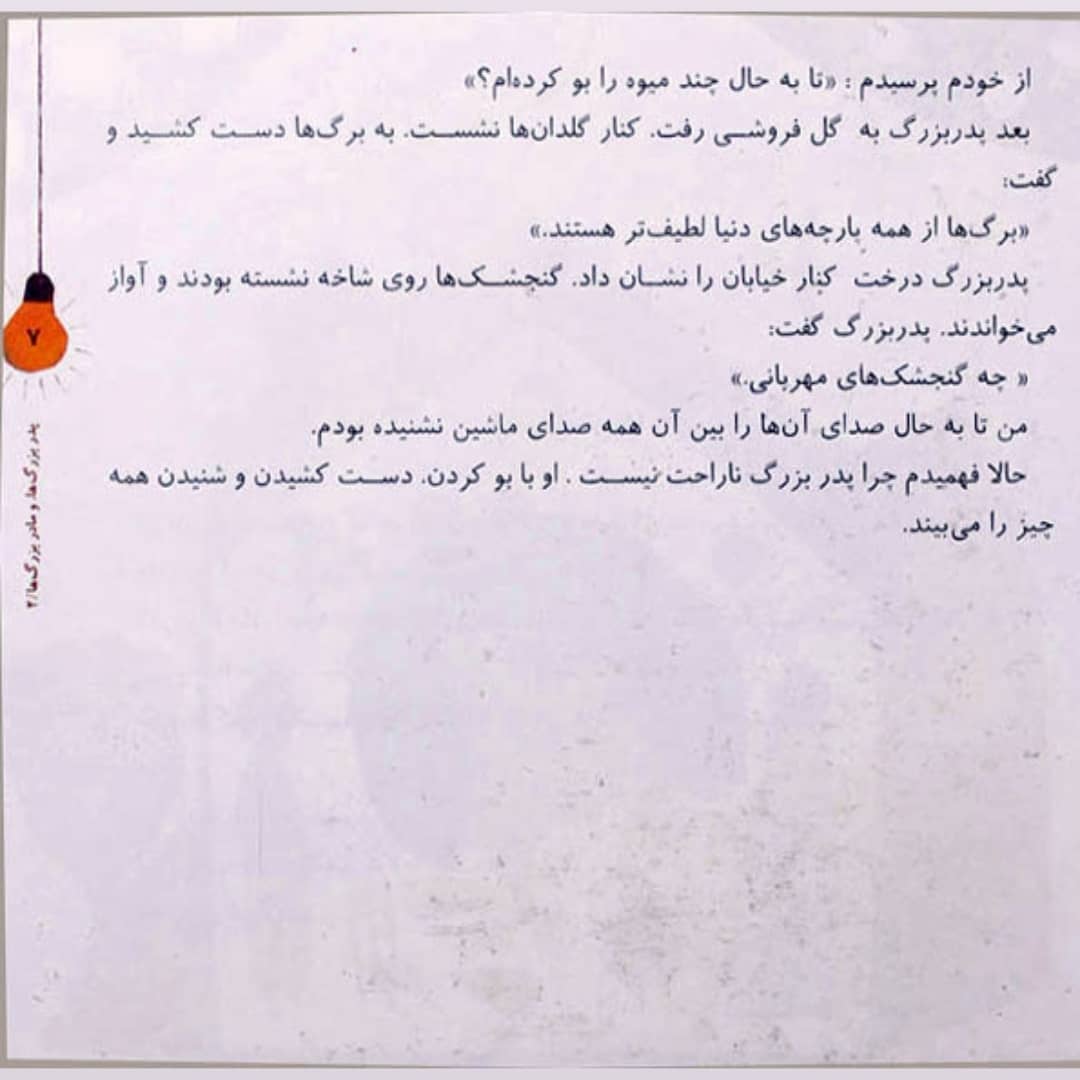 از خودم پرسیدم : «تا به حال چند میوه را بو کرده‌ام؟»
بعد پدربزرگ به گل فروشی رفت. کنار گلدان‌ها نشست. به برگ‌ها دست کشید و
گفت:
«برگ‌ها از همه پارچه‌های دنیا لطیف‌تر هستند.»
پدربزرگ درخت کنار خیابان را نشان داد. گنجشک‌ها روی شاخه نشسته بودند و آواز
می‌خواندند. پدربزرگ گفت:
« چه گنجشک‌های مهربانی.»
من تا به حال صدای آن‌ها را بین آن همه صدای ماشین نشنیده بودم.
حالا فهمیدم چرا پدر بزرگ ناراحت نیست . او با بو کردن. دست کشیدن و شنیدن همه
چیز را می‌بیند.
۷
پدر بزرگ‌ها، و مادر بزرگ‌ها/۲